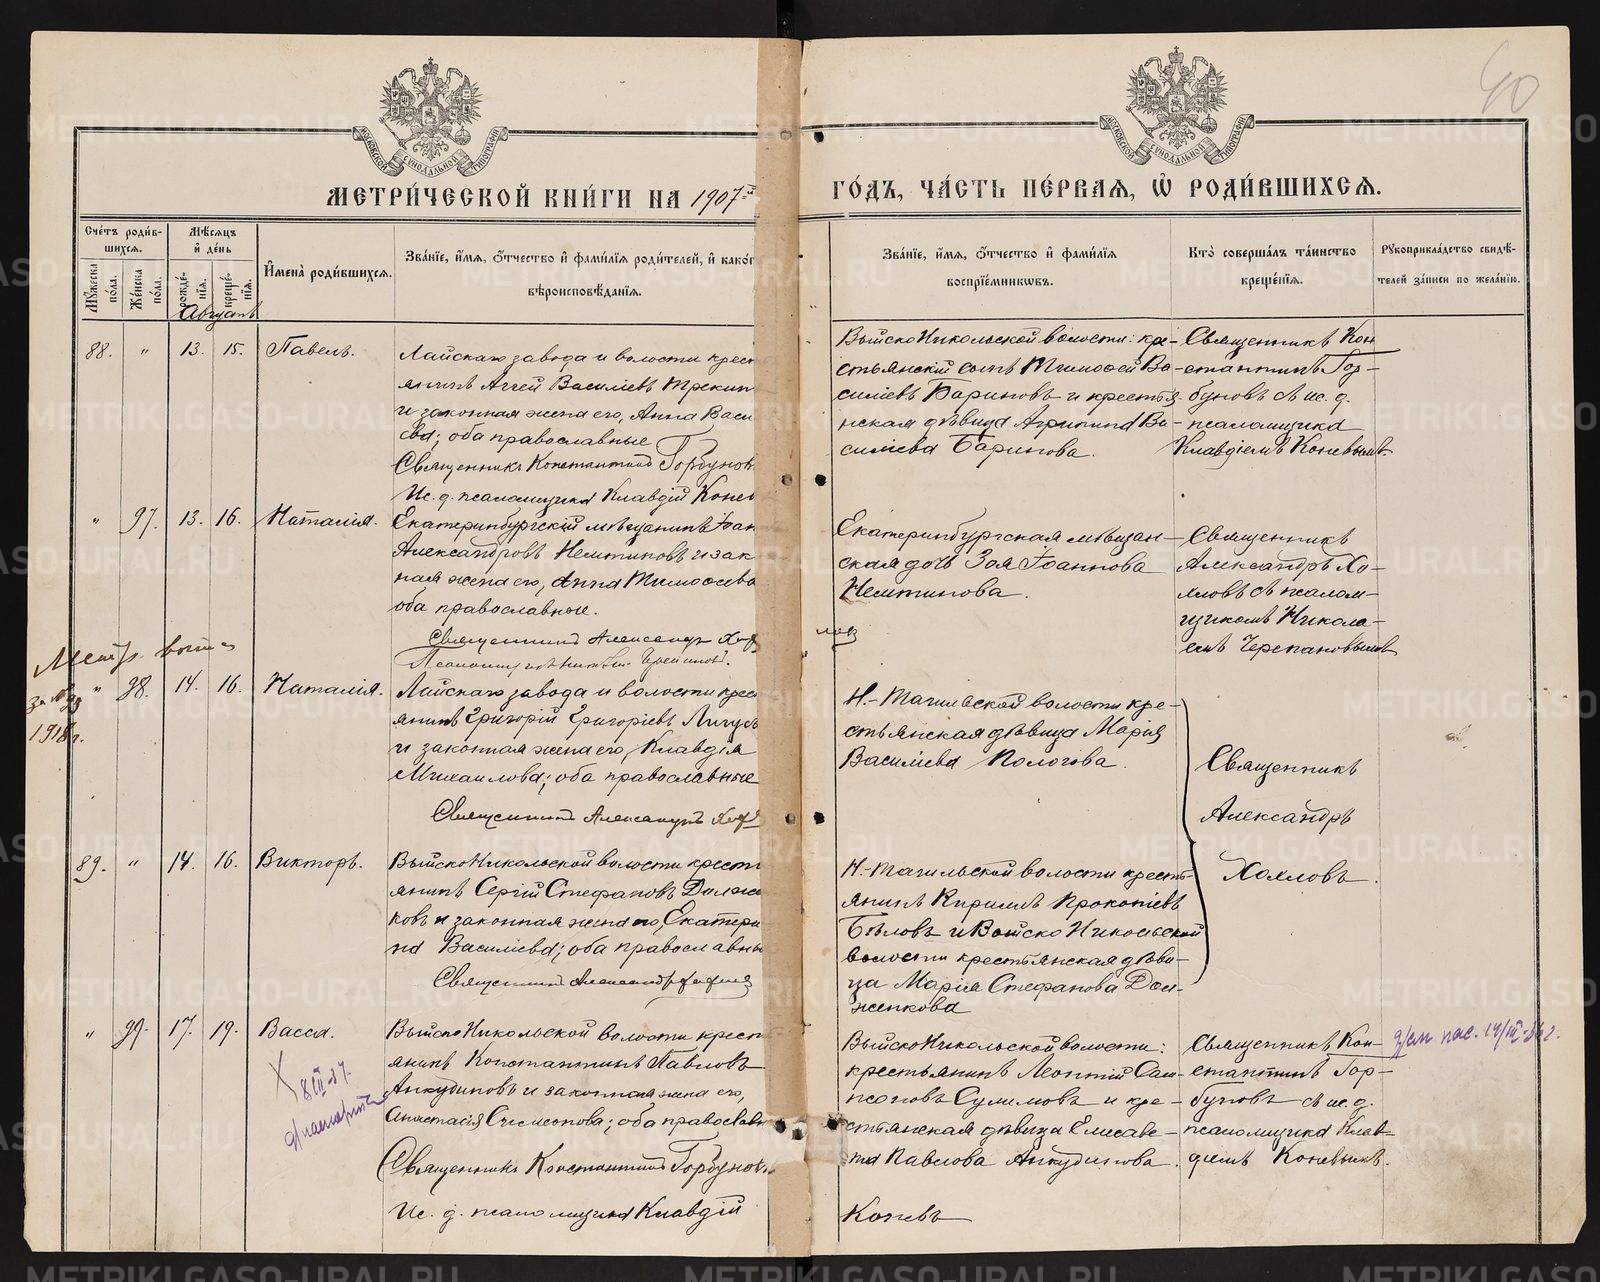 40
МОСКОВСКОЙ СѴНОДАЛЬНОЙ ТИПОГРАФІИ
МОСКОВСКОЙ СѴНОДАЛЬНОЙ ТИПОГРАФІИ
МЕТРИ́ЧЕСКОЙ КНИ́ГИ НА 1907-й
ГО́ДЪ, ЧА́СТЬ ПЕ́РВАЯ, Ѡ҆ РОДИ́ВШИХСЯ.
Сче́тъ роди́в-
шихся.
Мꙋжеска по́ла.
Же́нска по́ла.
Мѣ́сяцъ
и҆ де́нь
рожде́нїя.
креще́нїя.
Августъ
И҆мена̀ роди́вшихся.
Зва́нїе, и҆́мя, ѻ҆́тчество и҆ фами́лїя роди́телей, и҆ како́г
вѣроисповѣ́данїя.
Зва́нїе, и҆́мя, ѻ҆́тчество и҆ фами́лїя
воспрїе́мниковъ.
Кто̀ соверша́лъ та́инство
креще́нїя.
Рꙋкоприкла́дство свидѣ́-
телей за́писи по жела́нїю.
88. " 13. 15. Павелъ.
Лайскаго завода и волости крест
янинъ Аггей Василіевъ Трекин
и законная жена его, Анна Васи
ева; оба православные
Священникъ Константинъ Горбунов
Ис. д. псаломщика Клавдій Конев
Выйско Никольской волости: кре-
стьянскій сынъ Тимофей Ва-
силіевъ Бариновъ и крестья-
нская дѣвица Агрипина Ва-
силіева Баринова.
Священникъ Кон
стантинъ Гор-
буновъ съ ис. д.
псаломщика
Клавдіемъ Коневымъ
" 97. 13. 16. Наталія.
Екатеринбургскій мѣщанинъ Іоан
Александровъ Немтиновъ и зак
ная жена его, Анна Тимофеева
оба православные.
Священникъ Александръ Хох
лов
Екатеринбургская мѣщан-
ская дочь Зоя Іоаннова
Немтинова.
Священникъ
Александръ Хо-
хловъ съ псалом-
щикомъ Никола-
емъ Черепановымъ
Метр. вып
за № 93
1918 г.
" 98. 14. 16. Наталія.
Лайскаго завода и волости крес
янинъ Григорій Григоріевъ
и законная жена его, Клавдія
Михаилова; оба православные
Священникъ Александръ Хох
Н.-Тагильской волости кре-
стьянская дѣвица Марія
Василіева Пологова.
Священникъ
Александръ
Хохловъ.
89. " 14. 16. Викторъ.
Выйско Никольской волости крест
янинъ Сергій Стефановъ Долже
ковъ и законная жена его, Екатери
на Василіева; оба православны
Священникъ Александръ
Н.-Тагильской волости кресть-
янинъ Кириллъ Прокопіевъ
Бѣловъ и Выйско Никольской
волости крестьянская дѣви-
ца Марія Стефанова Дол-
женкова
" 99. 17. 19. Васса.
Выйско Никольской волости крест
янинъ Константинъ Павловъ
Анкудиновъ и законная жена его,
Анастасія Симеонова; оба православн
Священникъ Константинъ Горбуновъ
Ис. д. псаломщика Клавдій
Коневъ
Выйско Никольской волости:
крестьянинъ Леонтій Сам-
соновъ Сулимовъ и кре-
стьянская дѣвица Елисаве-
та Павлова Анкудинова.
Священникъ Кон-
стантинъ Гор-
буновъ съ ис. д.
псаломщика Клав-
діемъ Коневымъ.